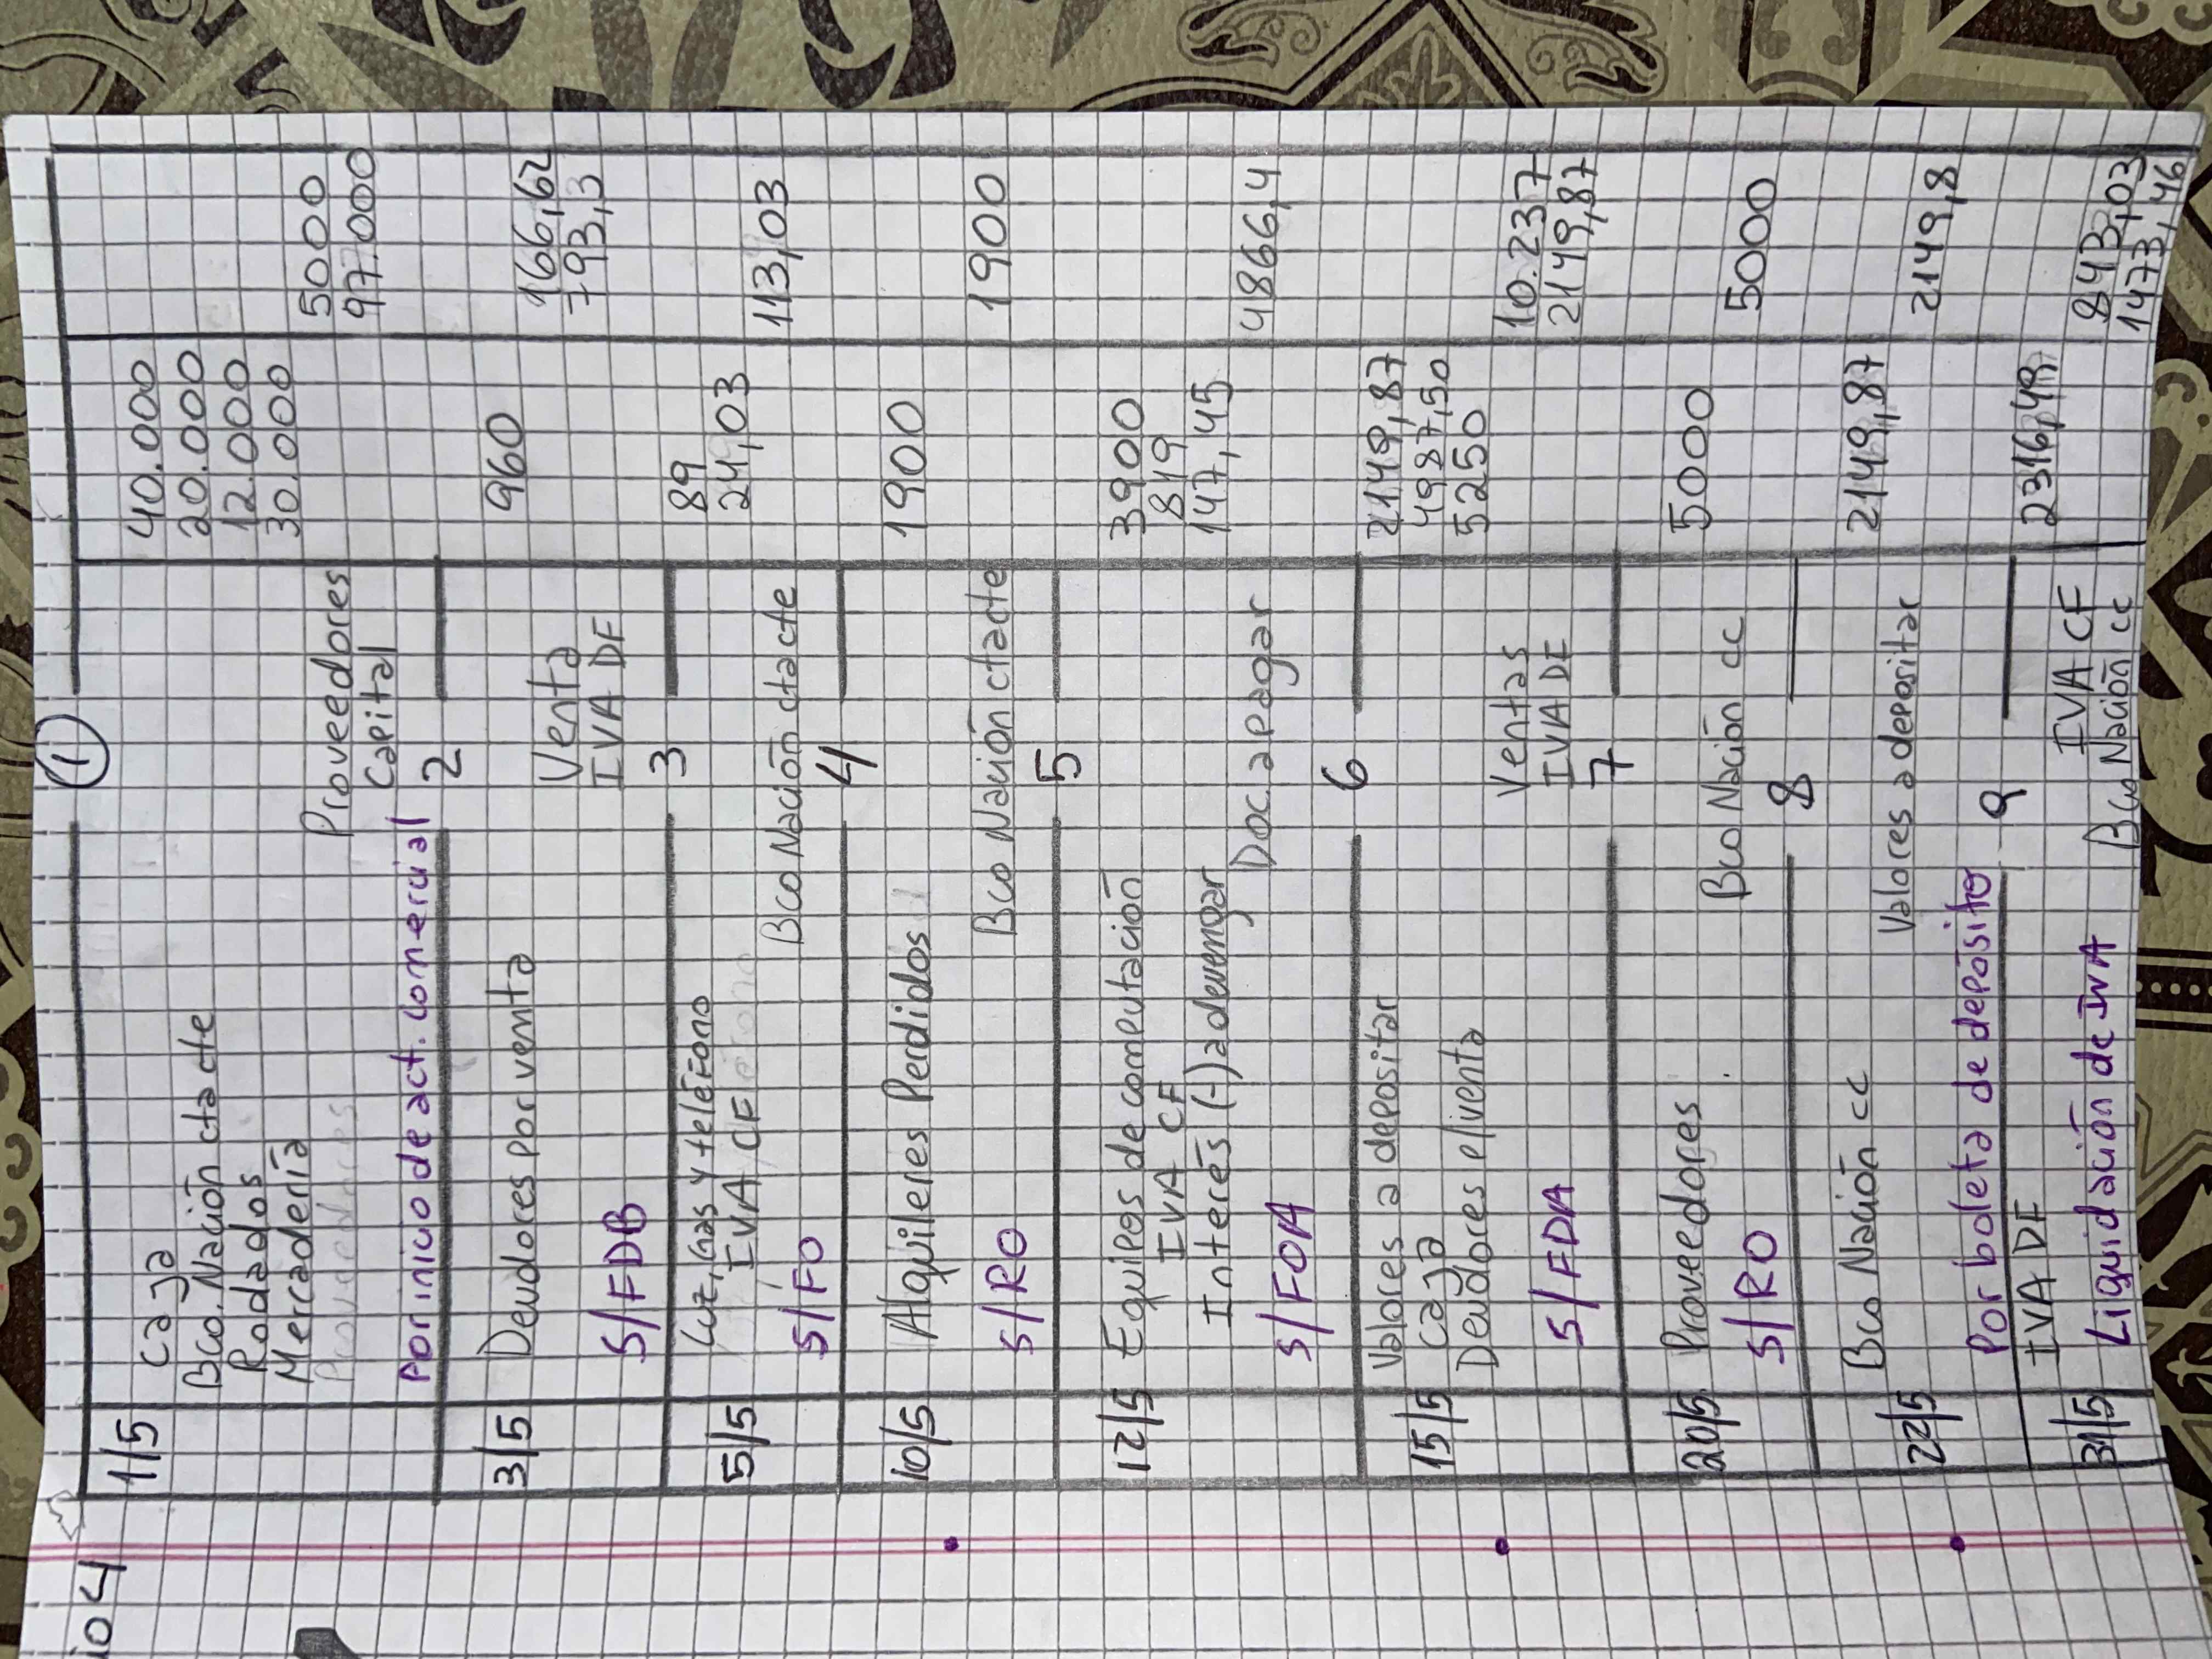 io 4
①
1/5 Caja 40.000
Bco. Nación cta cte 20.000
Rodados 12.000
Mercadería 30.000
Proveedores 5000
Capital 97.000
Por inicio de act. comercial
2
3/5 Deudores por venta 960
Venta 166,62
IVA DF 793,3
S/FDB
3
5/5 Luz, Gas y teléfono 89
IVA CF 24,03
Bco Nación ctacte 113,03
S/FO
4
10/5 Alquileres Perdidos 1900
Bco Nación ctacte 1900
S/RO
5
12/5 Equipos de computación 3900
IVA CF 819
Interés (-) a devengar 147,45
Doc. a pagar 4866,4
S/FOA
6
15/5 Valores a depositar 2149,87
Caja 4987,50
Deudores p/venta 5250
Ventas 10.237
IVA DF 2149,87
S/FDA
7
20/5 Proveedores 5000
Bco Nación cc 5000
S/RO
8
22/5 Bco Nación cc 2149,87
Valores a depositar 2149,8
Por boleta de depósito
9
31/5 IVA DF 2316,49
IVA CF 843,03
Bco Nación cc 1473,46
Liquidación de IVA